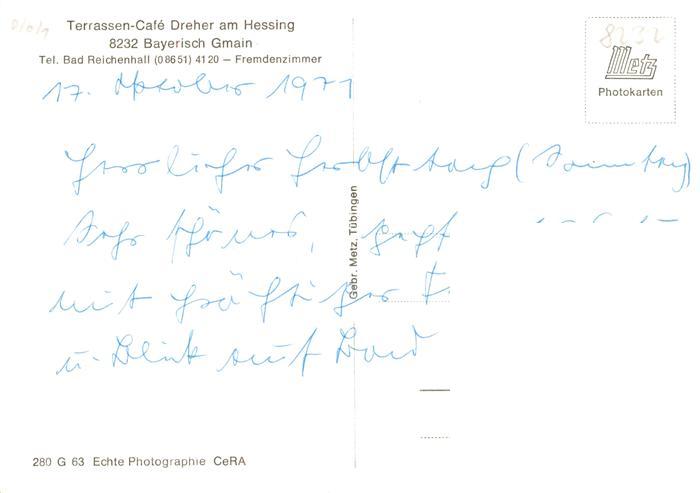 Terrassen-Café Dreher am Hessing
8232 Bayerisch Gmain
Tel. Bad Reichenhall (08651) 4120 — Fremdenzimmer
8232
Metz
Photokarten
17. Oktober 1971
Herrlicher Herbsttag (Sonntag)
Sehr schönes,
mit
u. Blick auf
Gebr. Metz, Tübingen
280 G 63 Echte Photographie CeRA